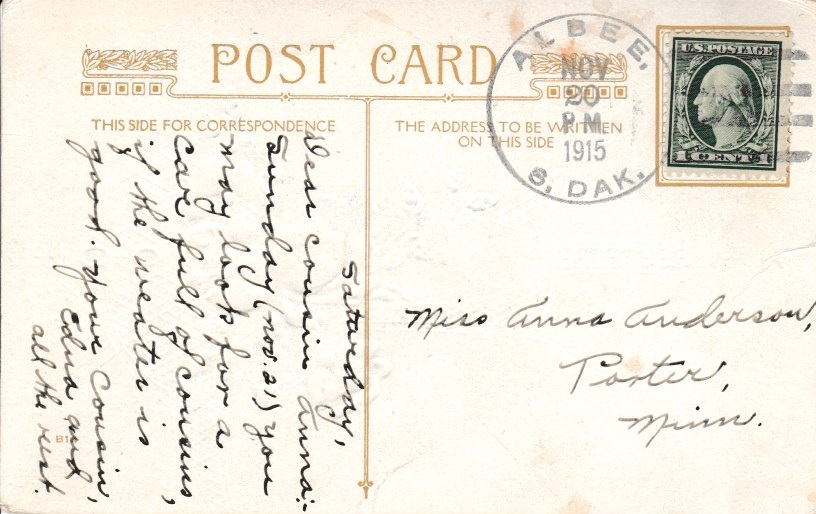 POST CARD
THIS SIDE FOR CORRESPONDENCE
THE ADDRESS TO BE WRITTEN
ON THIS SIDE
ALBEE,
NOV
20
P M
1915
S. DAK.
U.S. POSTAGE
1 CENT 1
Saturday,
Dear cousin Anna:-
Sunday (nov. 21) you
may look for a
car full of cousins,
if the weater is
good. your cousin,
Edna and
all the rest.
Miss Anna Anderson,
Porter,
Minn.